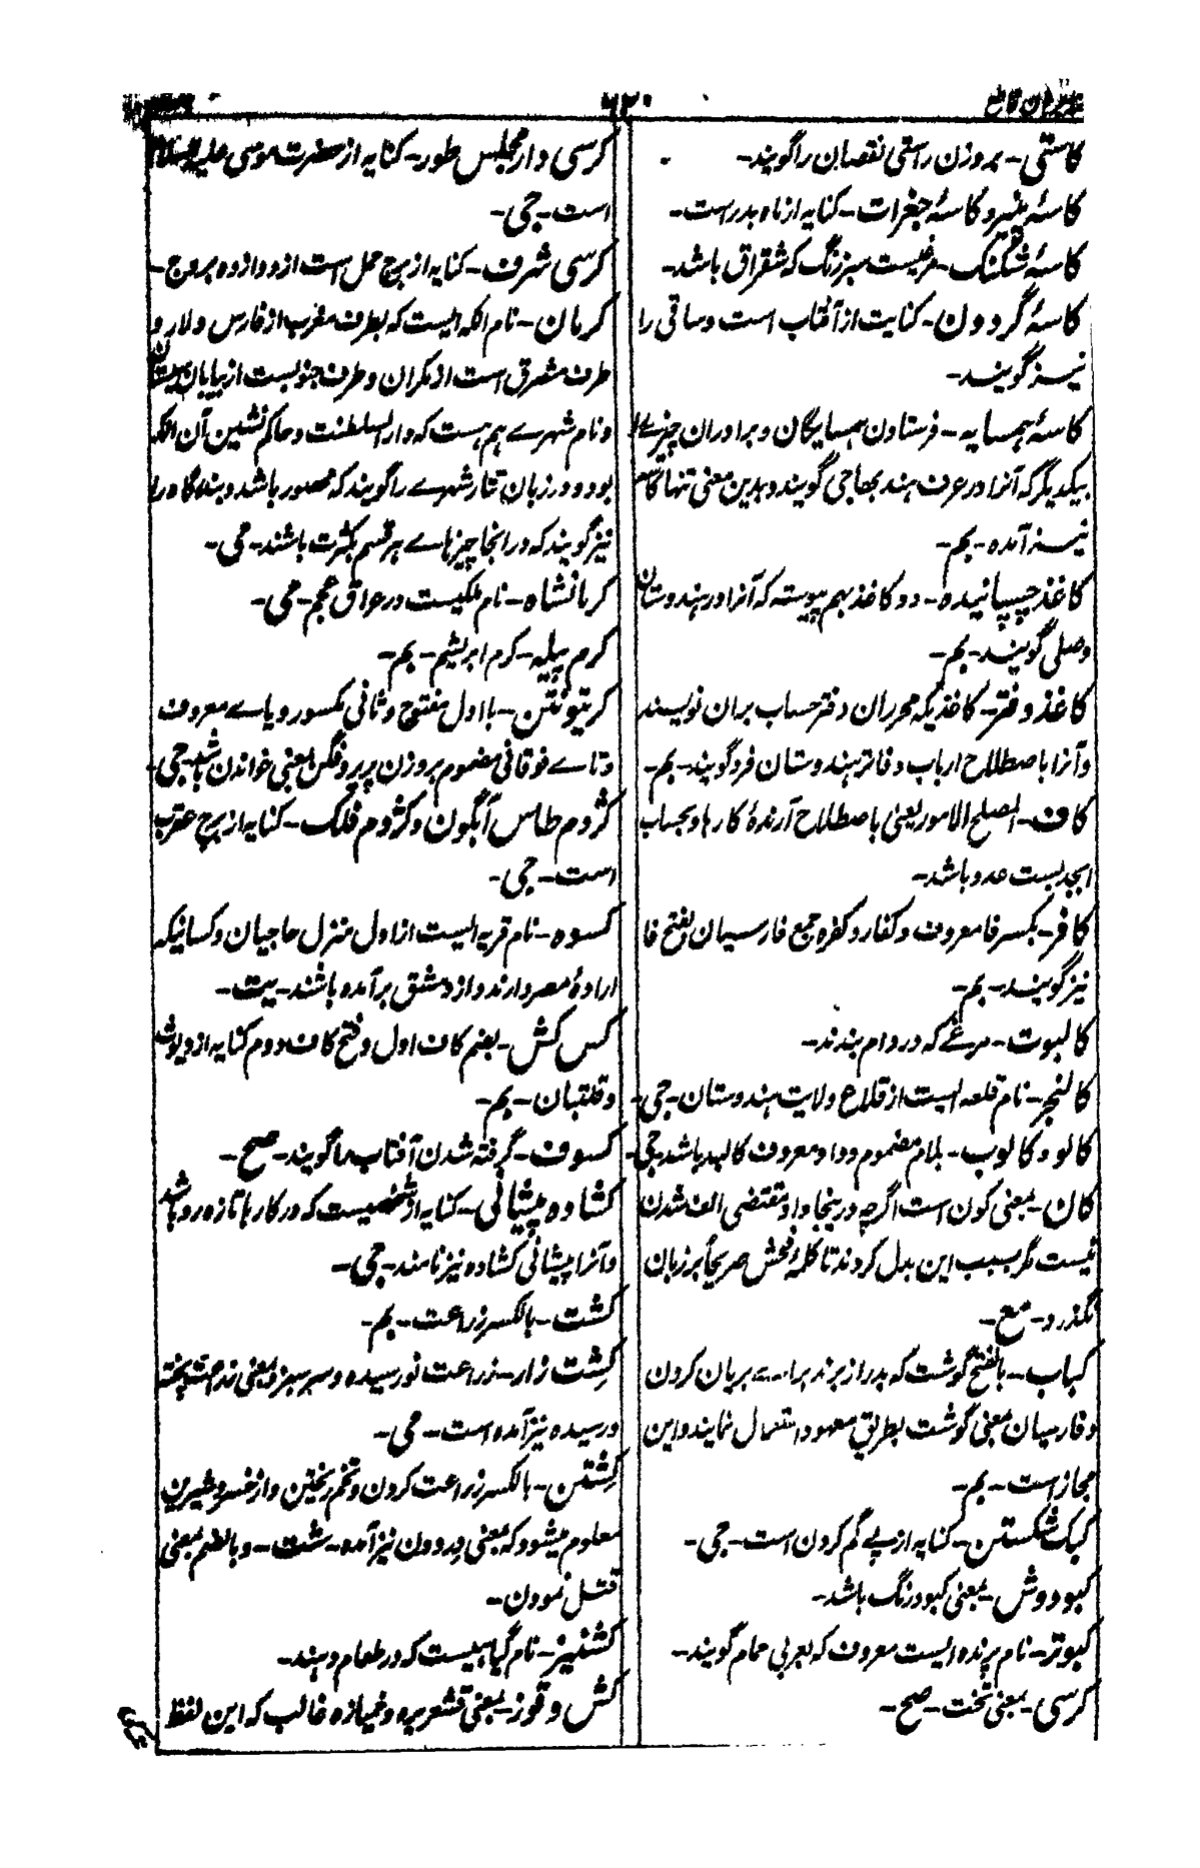 برهان قاطع
۶۲۰
کاستی - بروزن راستی نقصان را گویند -
کاسهٔ پنیر و کاسهٔ جغرات - کنایه از ماه بدر است -
کاسهٔ شکنک - مرغیست سبز رنگ که شقراق باشد -
کاسهٔ گردون - کنایت از آفتاب است و ساقی را
نیز گویند -
کاسهٔ همسایه - فرستادن همسایگان و برادران چیزے را
بیکدیگر که آنرا در عرف هند بھاجی گویند و بدین معنی تنها کاسه
نیز آمده - بم -
کاغذ چسپانیده - دو کاغذ بهم پیوسته که آنرا در هندوستان
وصلی گویند - بم -
کاغذ دفتر - کاغذیکه محرران دفتر حساب بران نویسند
و آنرا باصطلاح ارباب دفاتر هندوستان فرد گویند - بم -
کاف - المصلح الامور یعنی باصطلاح آرندهٔ کارها و بحساب
ابجد بیست عدد باشد -
کافر - بکسر فا معروف و کفار و کفره جمع فارسیان بفتح فا
نیز گویند - بم -
کالبوت - مرغے که در دام بندند -
کالنجر - نام قلعه ایست از قلاع ولایت هندوستان - جی -
کالو و کالوب - بلام مضموم و واو معروف کالبد باشد - جی -
کان - بمعنی کون است اگرچه درینجا واو مقتضی الف شدن
نیست مگر بسبب این بدل کردند تا کلمهٔ فحش صریحاً بر زبان
نگذرد - مع -
کباب - بالفتح گوشت که بدرازی برند براے بریان کردن
و فارسیان بمعنی گوشت بطریق معهود استعمال نمایند و این
مجاز است - بم -
کبک شکستن - کنایه از پے گم کردن است - جی -
کبودوش - بمعنی کبود رنگ باشد -
کبوتر - نام پرنده ایست معروف که بعربی حمام گویند -
کرسی - بمعنی تخت - صح -
کرسی دار مجلس طور - کنایه از حضرت موسی علیه السلام
است - جی -
کرسی شرف - کنایه از برج حمل است از دوازده بروج -
کرمان - نام الکه ایست که بطرف مغرب از فارس و لار و
طرف مشرق است از مکران و طرف جنوبست از بیابان سیستان
و نام شهرے هم هست که دار السلطنت و حاکم نشین آن الکه
بود و در زبان تتار شهرے را گویند که محصور باشد و بندگاه را
نیز گویند که در انجا چیزهاے هر قسم بکثرت باشند - می -
کرمانشاه - نام ملکیست در عراق عجم - می -
کرم پیله - کرم ابریشم - بم -
کریتونتن - با اول مفتوح و ثانی مکسور و یاے معروف
و تاے فوقانی مضموم بروزن پر پر و فکن بمعنی خواندن باشد - جی -
کژدم طاس آبگون و کژدم فلک - کنایه از برج عقرب
است - جی -
کسوه - نام قریه ایست از اول منزل حاجیان و کسانیکه
ارادهٔ مصر دارند و از دمشق برآمده باشند - بیت -
کس کش - بضم کاف اول و فتح کاف دوم کنایه از دیوث
و قلتبان - بم -
کسوف - گرفته شدن آفتاب را گویند - صح -
کشاده پیشانی - کنایه از شخصیست که در کارها تازه رو باشد
و آنرا پیشانی کشاده نیز نامند - جی -
کشت - بالکسر زراعت - بم -
کشت زار - زراعت نورسیده و سرسبز و بمعنی زراعت پخته
و رسیده نیز آمده است - می -
کشتن - بالکسر زراعت کردن و تخم ریختن و از خسرو شیرین
معلوم میشود که بمعنی درودن نیز آمده - شت - و بالضم بمعنی
قتل نمودن -
کشنیز - نام گیاهیست که در طعام دهند -
کش و قوز - بمعنی قشعریره و خمیازه غالب که این لفظ